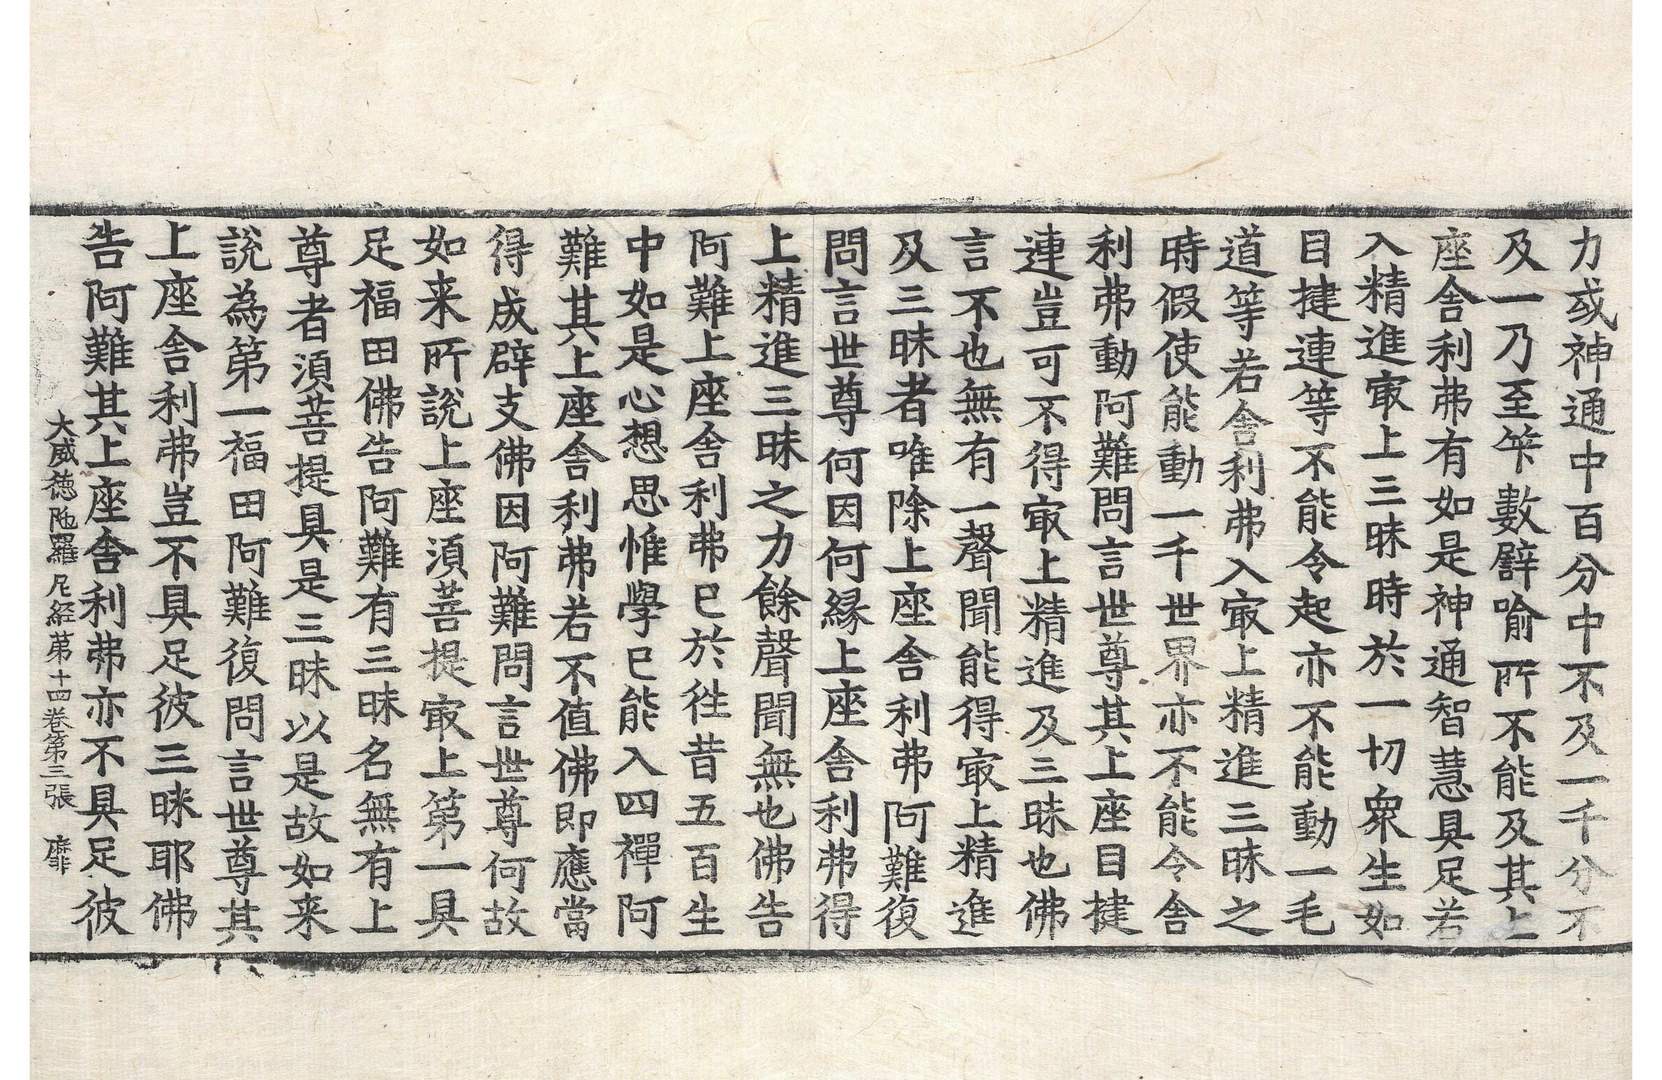 力或神通中百分中不及一千分不
及一乃至筭數譬喻所不能及其上
座舎利弗有如是神通智慧具足若
入精進㝡上三昧時於一切衆生如
目揵連等不能令起亦不能動一毛
道等若舎利弗入㝡上精進三昧之
時假使能動一千世界亦不能令舎
利弗動阿難問言世尊其上座目揵
連豈可不得㝡上精進及三昧也佛
言不也無有一聲聞能得㝡上精進
及三昧者唯除上座舎利弗阿難復
問言世尊何因何縁上座舎利弗得
上精進三昧之力餘聲聞無也佛告
阿難上座舎利弗已於徃昔五百生
中如是心想思惟學已能入四禪阿
難其上座舎利弗若不值佛即應當
得成辟支佛因阿難問言世尊何故
如来所說上座湏菩提㝡上第一具
足福田佛告阿難有三昧名無有上
尊者湏菩提具是三昧以是故如来
說為第一福田阿難復問言世尊其
上座舎利弗豈不具足彼三昧耶佛
告阿難其上座舎利弗亦不具足彼
大威徳陁羅尼経苐十四卷第三張 靡